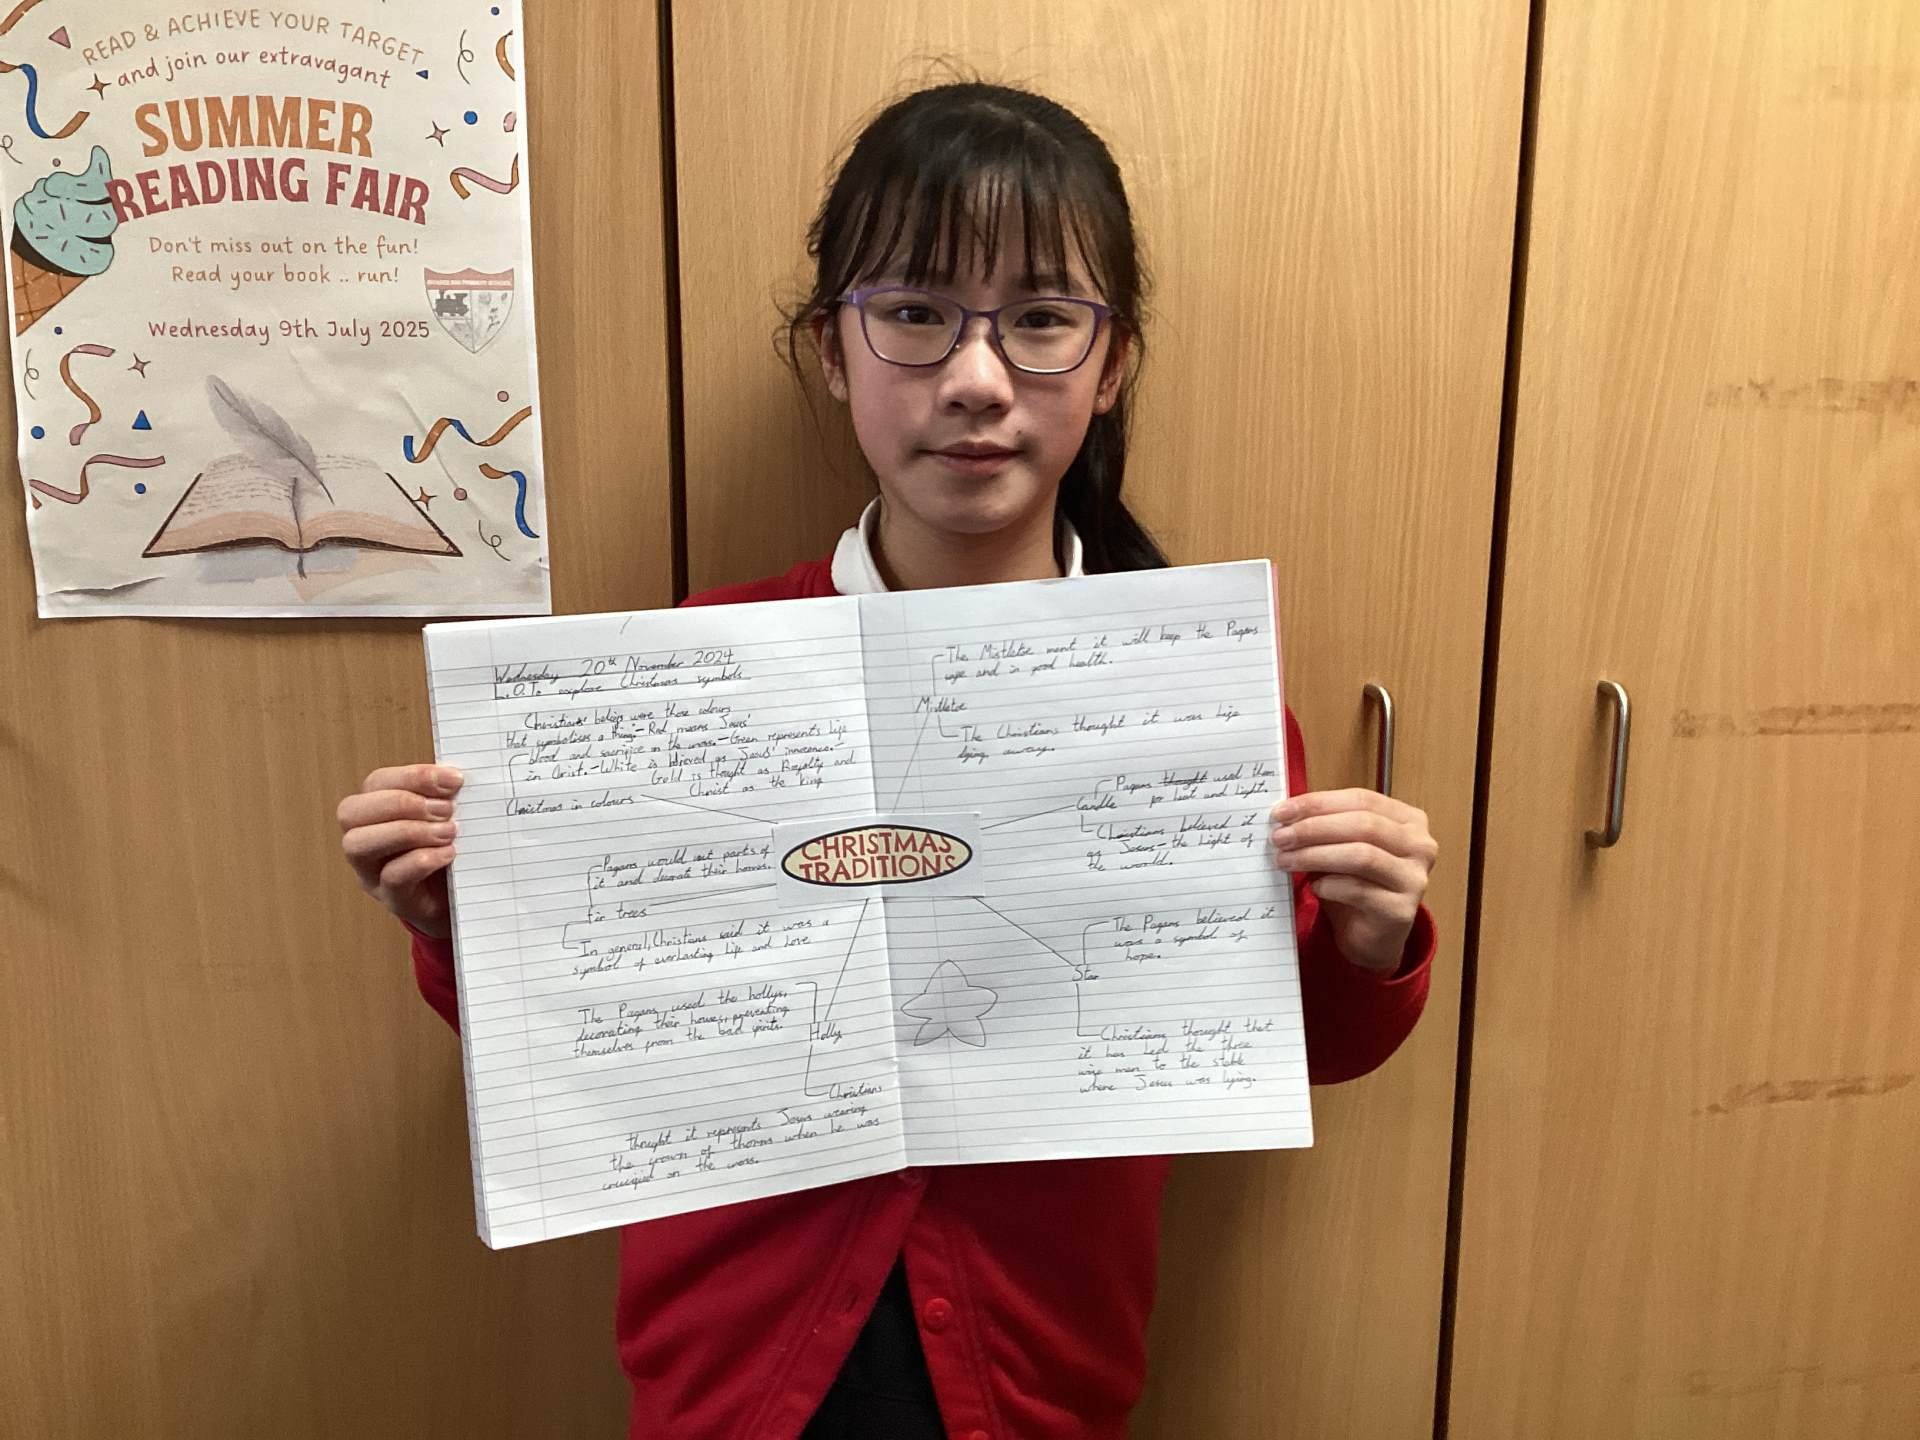 READ & ACHIEVE YOUR TARGET
and join our extravagant
SUMMER
READING FAIR
Don't miss out on the fun!
Read your book .. run!
Wednesday 9th July 2025
Wednesday 20th November 2024
L.O.To explore Christmas symbols
Christians' beliefs were those colours
that symbolises a thing:-Red means Jesus'
blood and sacrifice on the cross.-Green represents life
in Christ.-White is believed as Jesus' innocence.-
Gold is thought as Royalty and
Christ as the king
Christmas in colours
Pagans would cut parts of
it and decorate their homes.
fir trees
In general, Christians said it was a
symbol of everlasting life and love
The Pagans used the hollys,
decorating their houses, preventing
themselves from the bad spirits.
Holly
Christians
thought it represents Jesus wearing
the crown of thorns when he was
crucified on the cross.
CHRISTMAS
TRADITIONS
The Mistletoe ment it will keep the Pagans
and in good health.
Mistletoe
The Christians thought it was life
dying away.
Pagans thought used them
for heat and light.
Candle
Christians believed it
as Jesus-the Light of
the world.
The Pagans believed it
was a symbol of
hope.
Star
Christians thought that
it has led the three
wise men to the stable
where Jesus was lying.